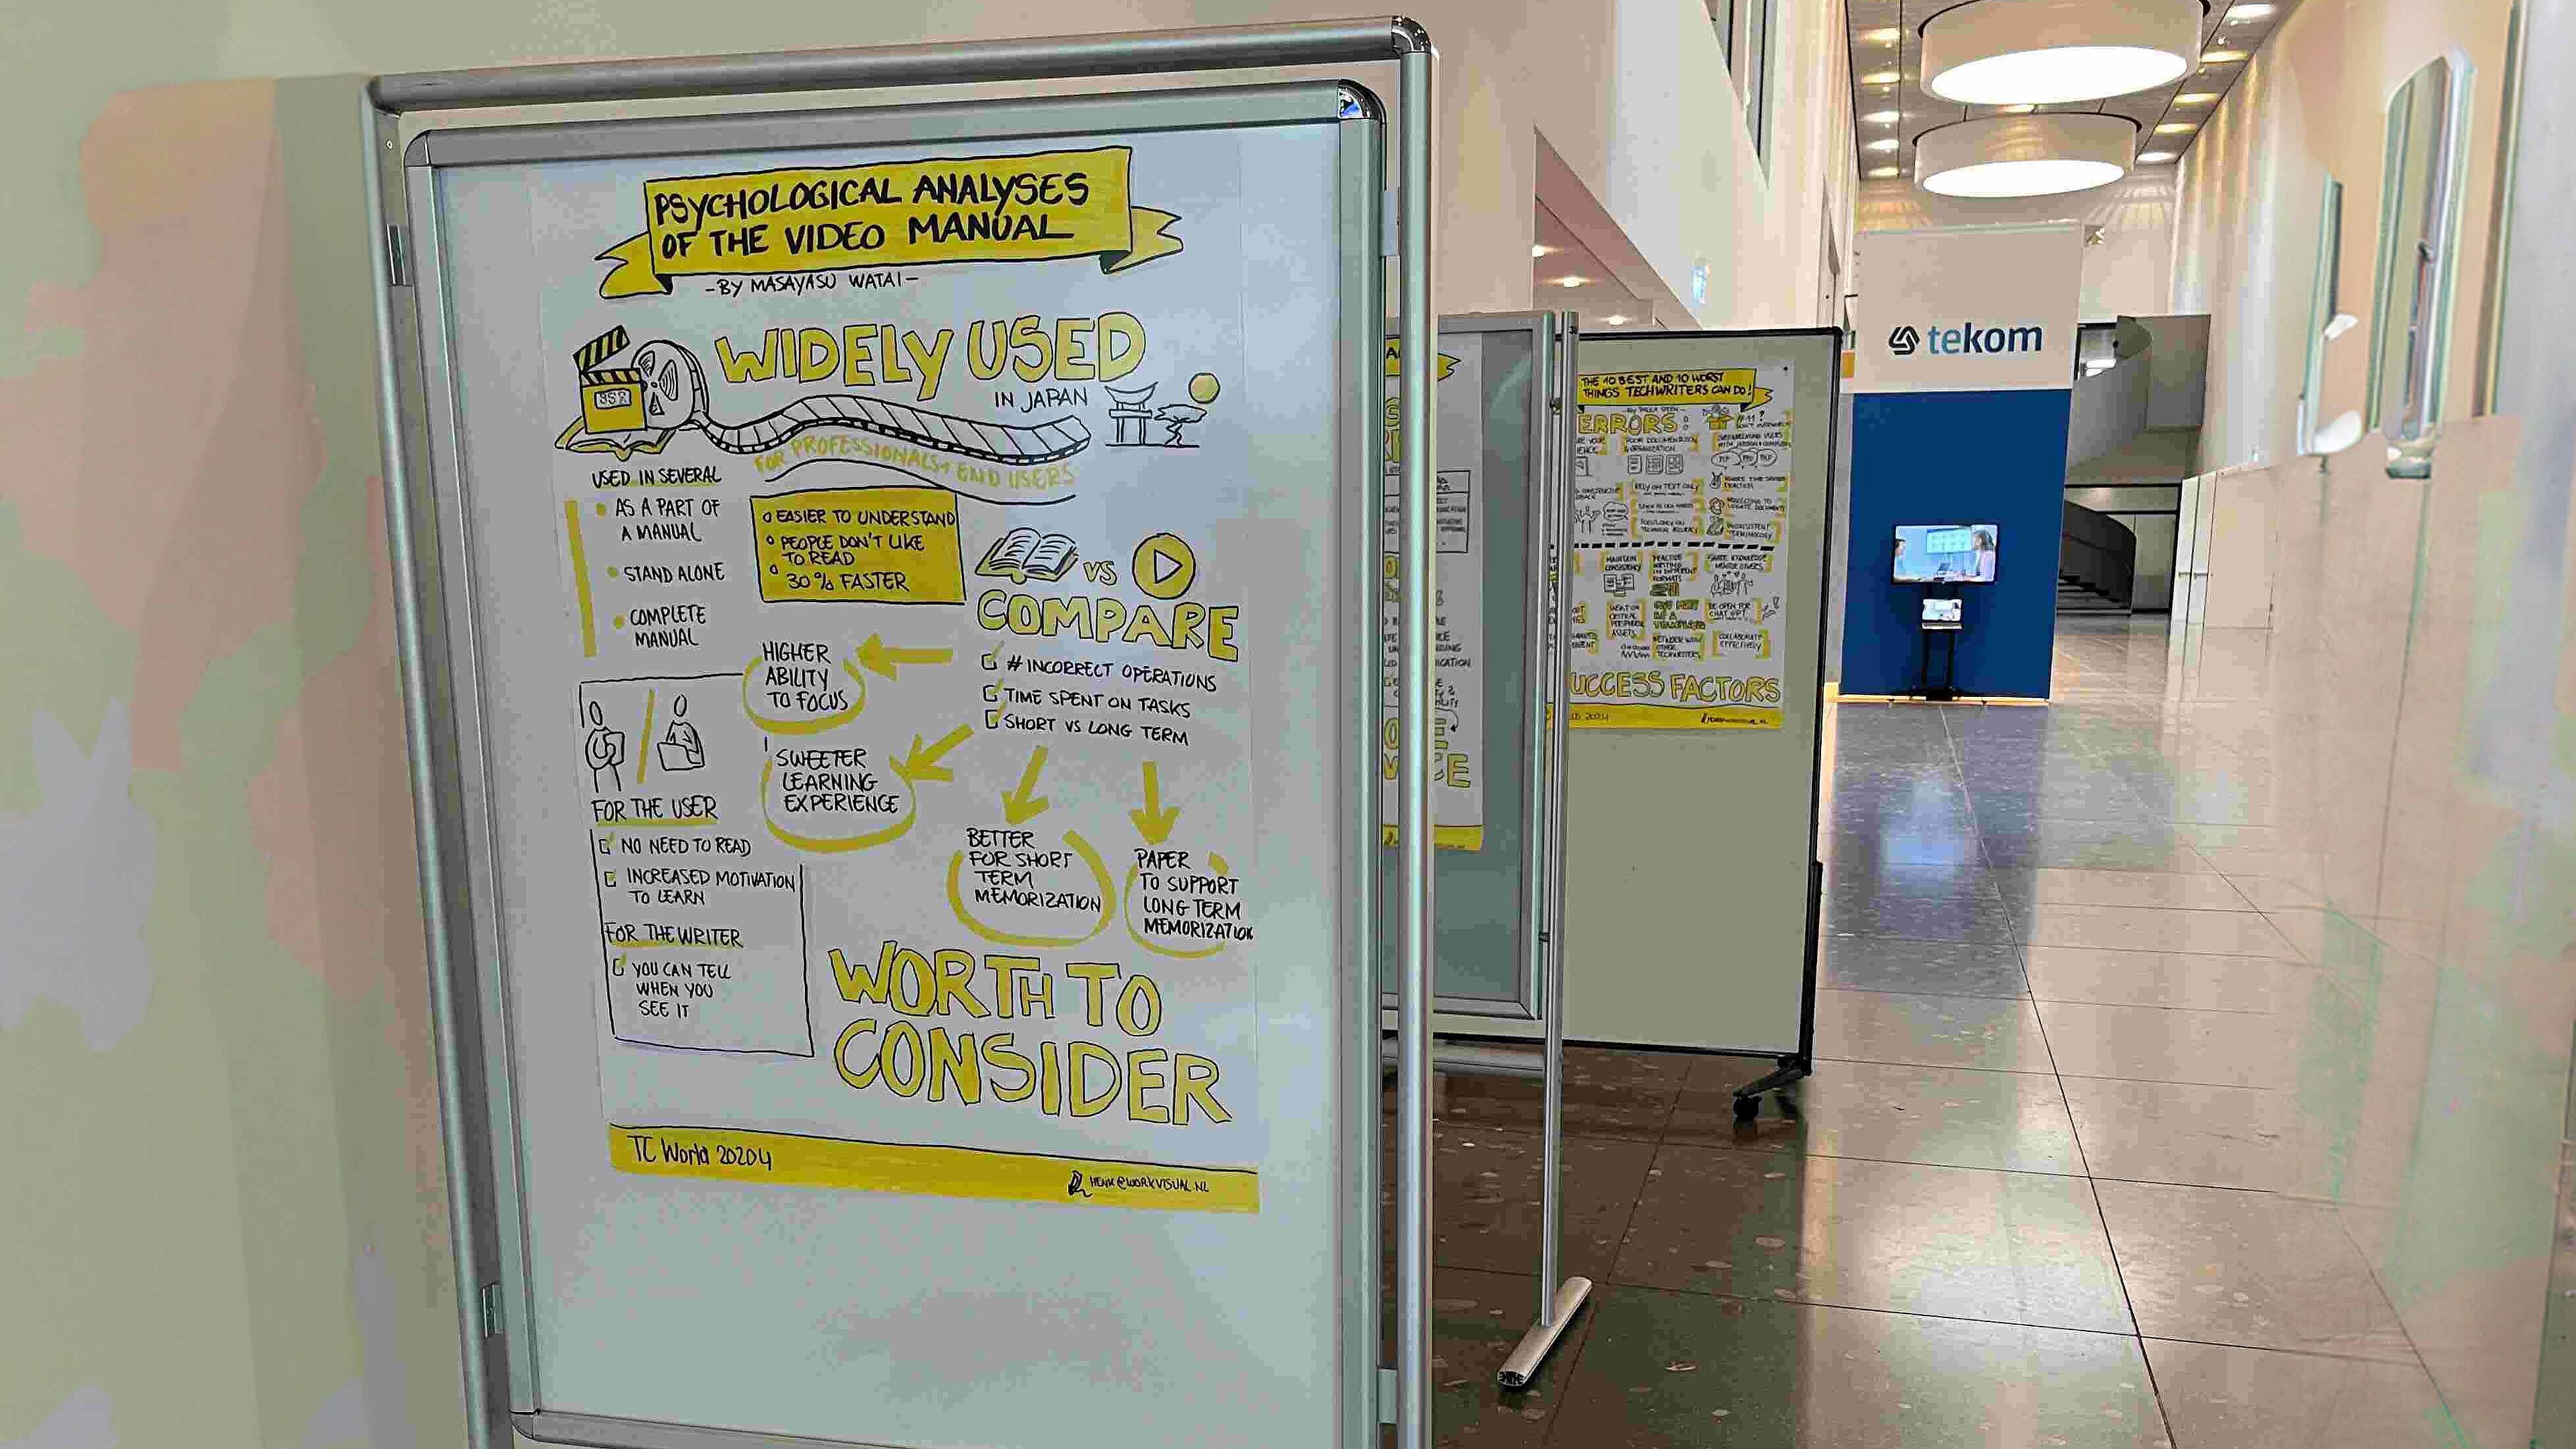 PSYCHOLOGICAL ANALYSES
OF THE VIDEO MANUAL
-BY MASAYASU WATAI-
WIDELY USED
IN JAPAN
FOR PROFESSIONALS+ END USERS
USED IN SEVERAL
AS A PART OF
A MANUAL
STAND ALONE
COMPLETE
MANUAL
EASIER TO UNDERSTAND
PEOPLE DON'T LIKE
TO READ
30% FASTER
VS
COMPARE
# INCORRECT OPERATIONS
TIME SPENT ON TASKS
SHORT VS LONG TERM
HIGHER
ABILITY
TO FOCUS
SWEETER
LEARNING
EXPERIENCE
BETTER
FOR SHORT
TERM
MEMORIZATION
PAPER
TO SUPPORT
LONG TERM
MEMORIZATION
FOR THE USER
NO NEED TO READ
INCREASED MOTIVATION
TO LEARN
FOR THE WRITER
YOU CAN TELL
WHEN YOU
SEE IT
WORTH TO
CONSIDER
TC World 20204
HENK@WORKVISUAL.NL
THE 10 BEST AND 10 WORST
THINGS TECHWRITERS CAN DO!
ERRORS:
RELY ON TEXT ONLY
MAINTAIN
CONSISTENCY
PRACTICE
WRITING
IN DIFFERENT
FORMATS
BE OPEN FOR
CHAT GPT
NETWORK WITH
OTHER
TECHWRITERS
COLLABORATE
EFFECTIVELY
UCCESS FACTORS
tekom